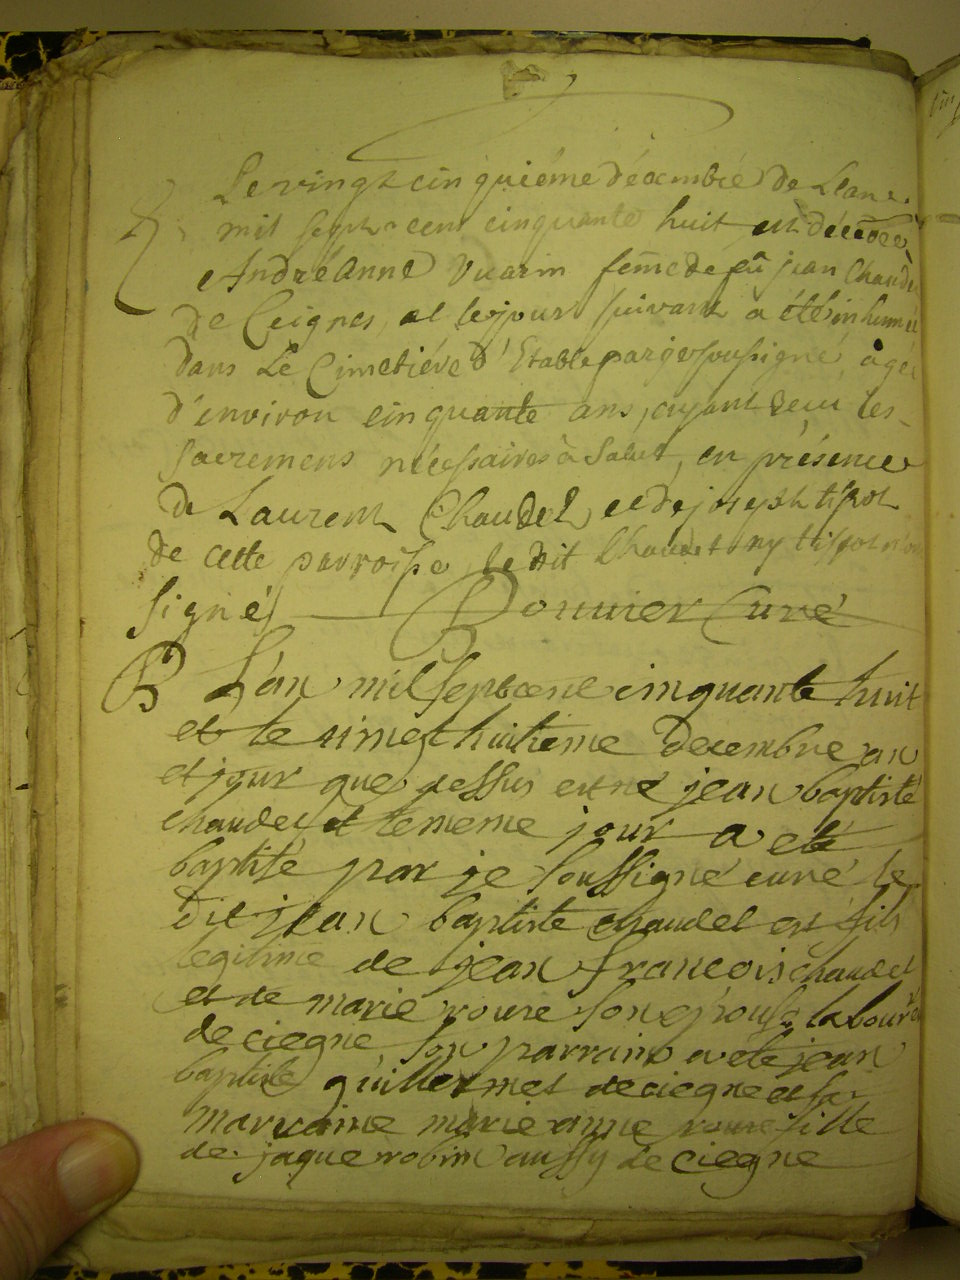 Le vingt cinquiéme décembre de Lan
mil sept cent cinquante huit est décedée
André Anne Vuarin femme de fû jean Chaudet
de Ceignes, et le jour suivant a été inhumée
dans Le Cimetiére d'Etable par je soussigné, âgée
d'environ cinquante ans, ayant reçu les
sacremens nécessaires à Salut, en présence
de Laurent Chaudet, et de joseph tissot
de cette parroisse, le dit Chaudet ny tissot n'ont
signés Bonnier Curé
B L'an mil sept cent cinquante huit
et le vingt huitieme Decembre an
et jour que dessus est né jean baptiste
chaudet et le meme jour a eté
baptisé par je soussigné curé le
Dit jean baptiste chaudet est fils
legitime de jean francois chaudet
et de marie roure son epouse
de ciegne son parrain a eté jean
baptiste guillermet de ciegne et sa
marraine marie anne fille
de jaque robin aussy de ciegne